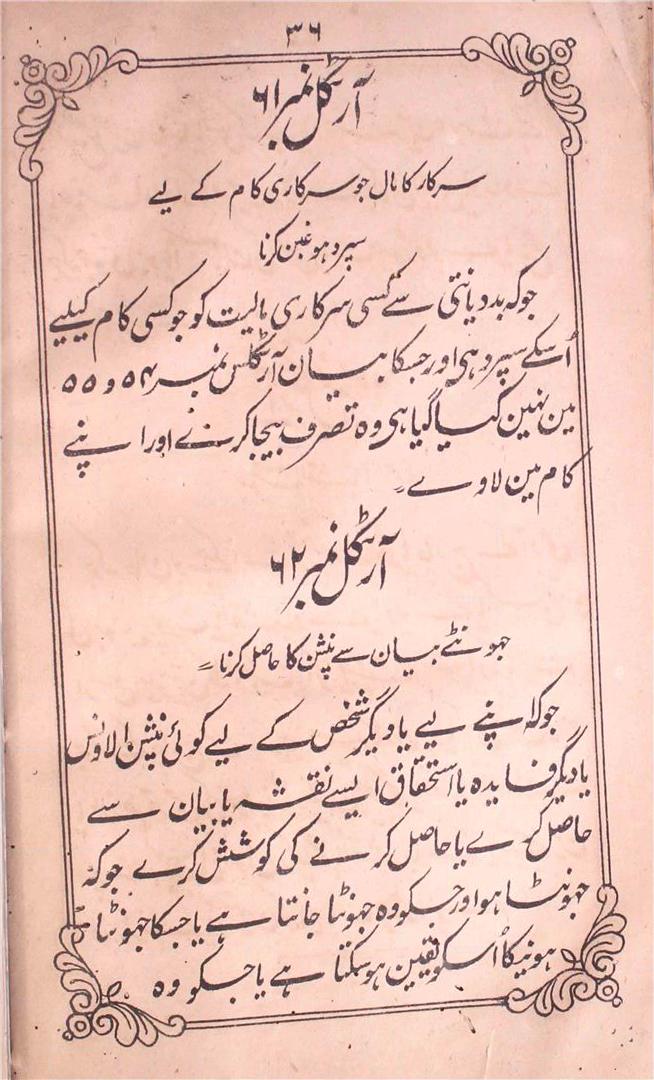 ۳۶
آرٹکل نمبر ۶۱
سرکار کا مال جو سرکاری کام کے لیے
سپرد ہو غبن کرنا
جوکہ بددیانتی سے کسی سرکاری مالیت کو جو کسی کام کیلیے
اُسکے سپرد ہی اور جسکا بیان آرٹکلس نمبر ۵۴ و ۵۵
مین نہین کیا گیا ہی وہ تصرف بیجا کرنے اور اپنے
کام مین لاوے ۔
آرٹکل نمبر ۶۲
جہونٹے بیان سے پنشن کا حاصل کرنا ۔
جوکہ اپنے لیے یا دیگر شخص کے لیے کوئی پنشن الاونس
یا دیگر فایدہ یا استحقاق ایسے نقشہ یا بیان سے
حاصل کرے یا حاصل کرنے کی کوشش کرے جوکہ
جہونٹا ہو اور جسکو وہ جہونٹا جانتا ہے یا جسکا جہونٹا
ہونیکا اُسکو یقین ہو سکتا ہے یا جسکو وہ